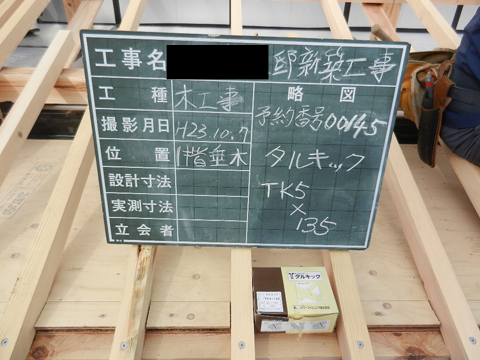 工事名 邸新築工事
工種 木工事
略図
予約番号00145
撮影月日 H23.10.7
位置 1階垂木
タルキック
TK5
×
135
設計寸法
実測寸法
立会者
タルキック